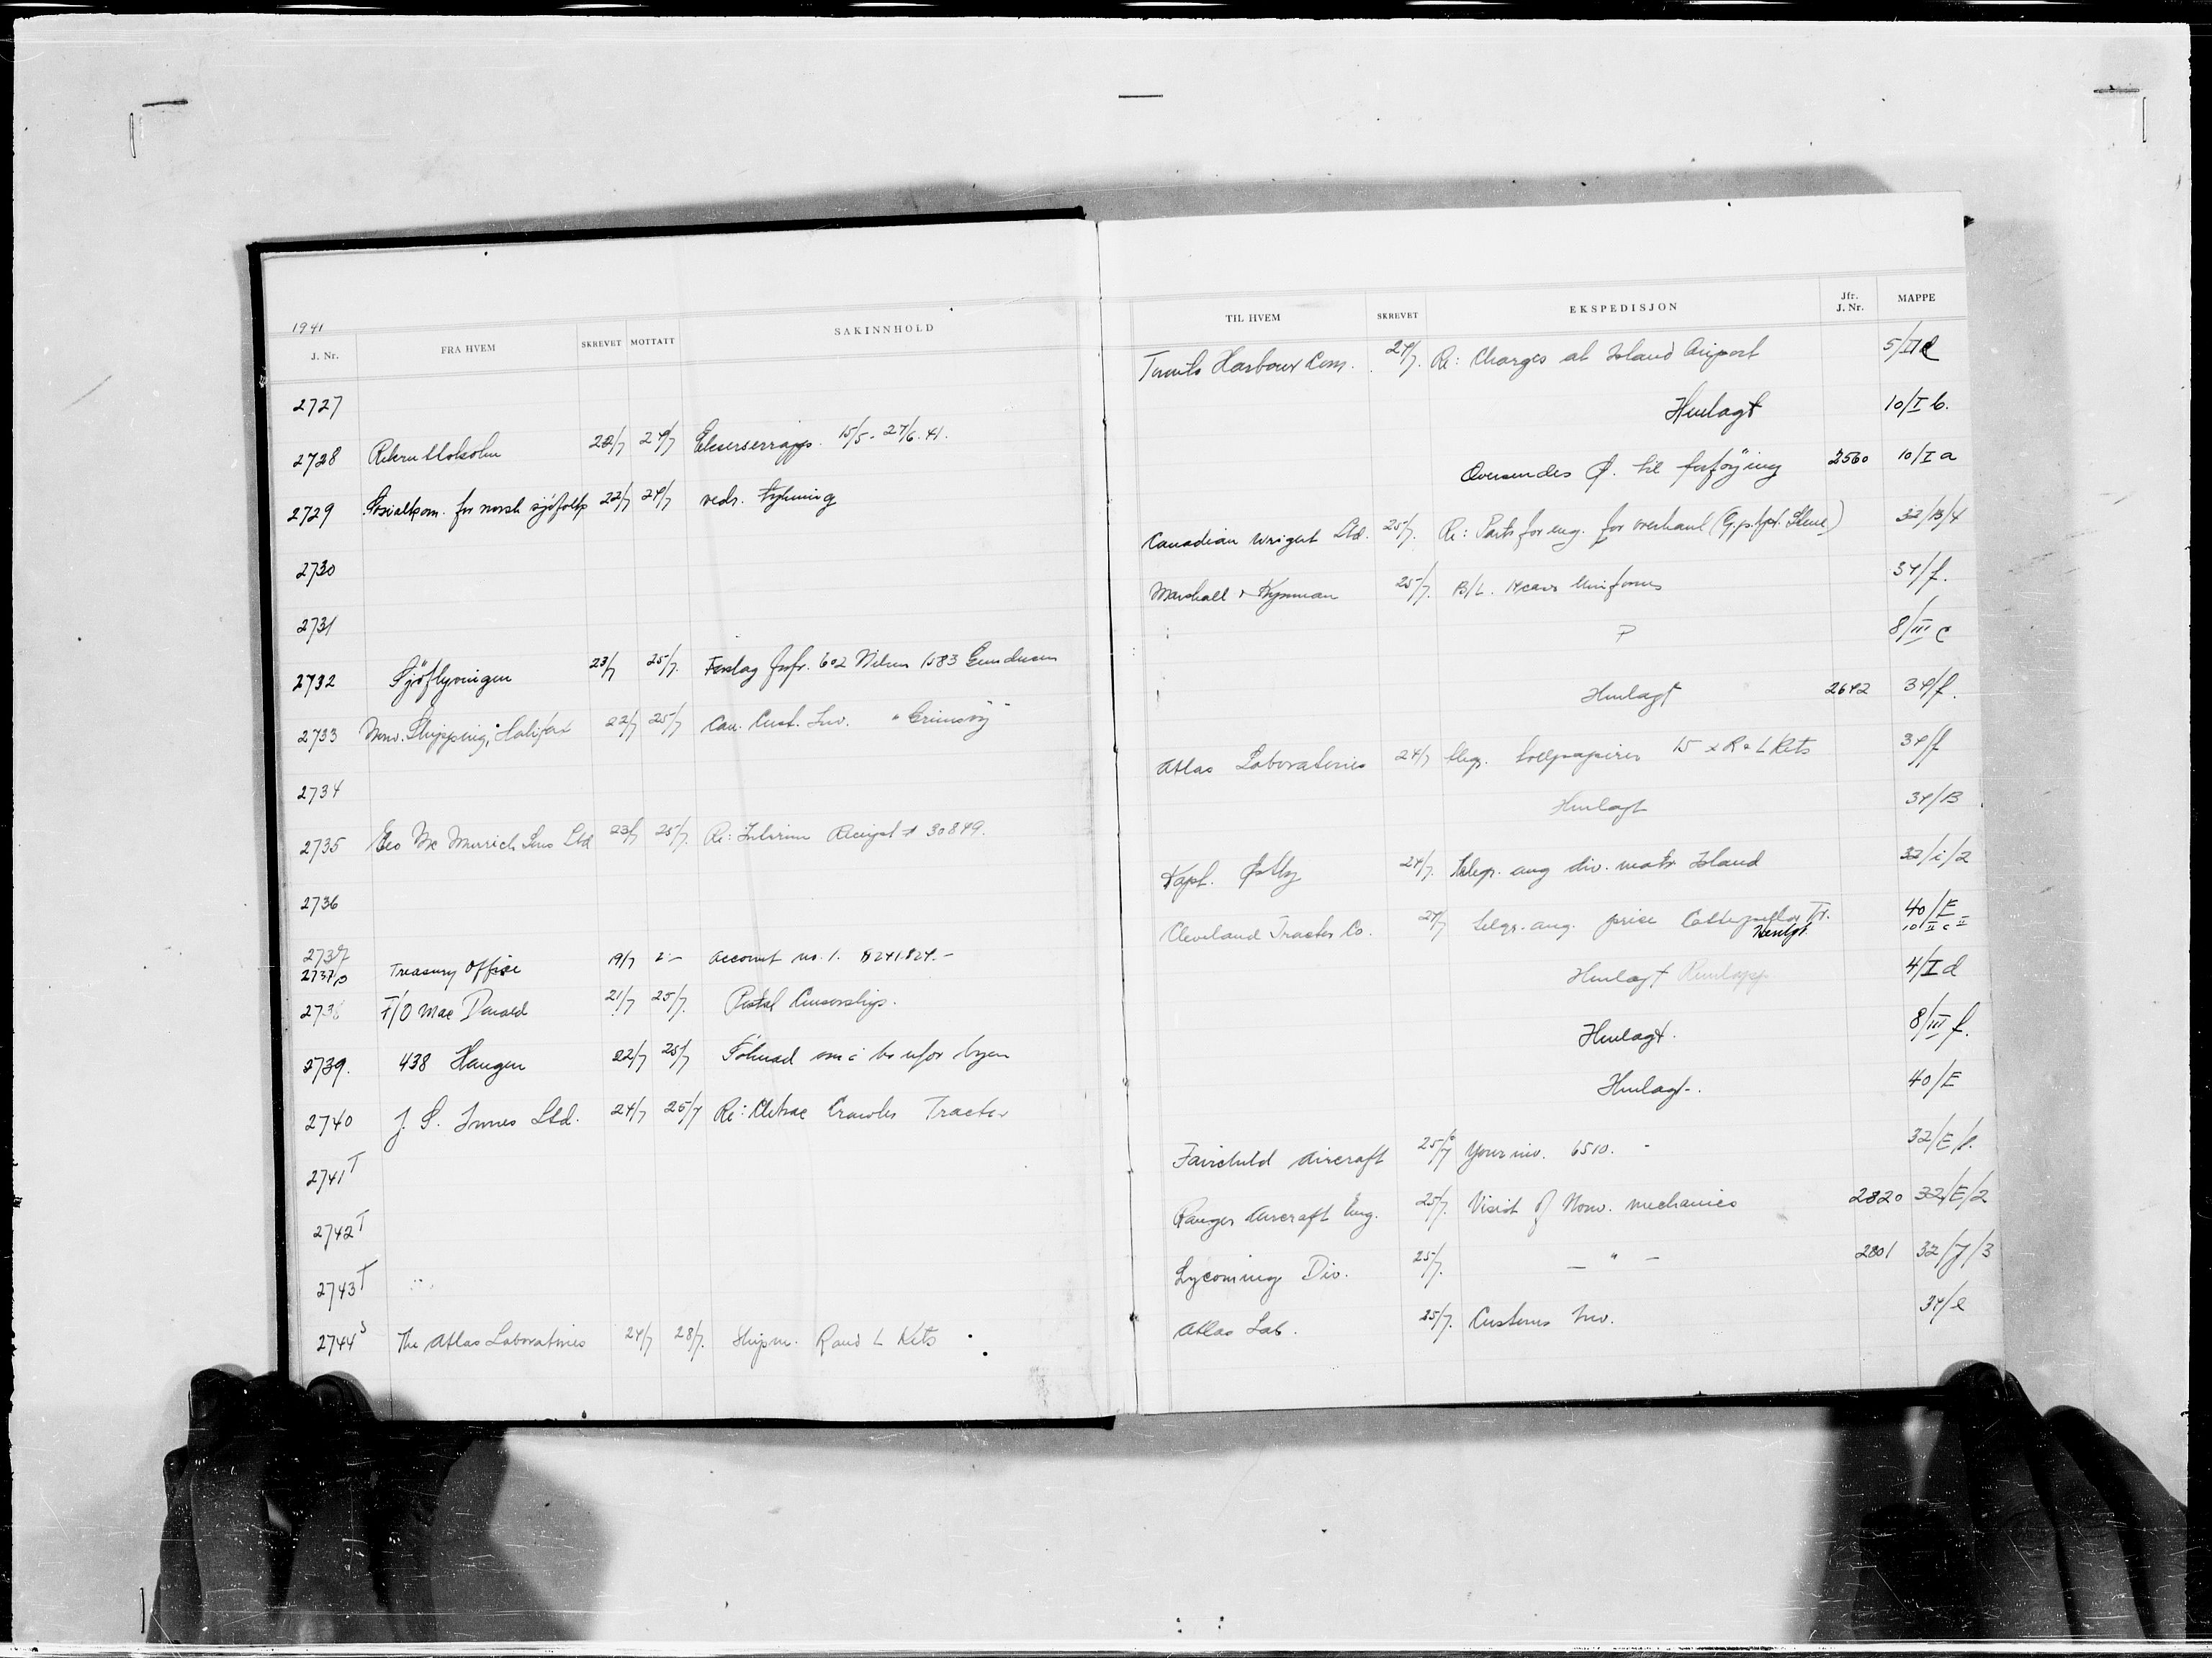 1941
J. Nr. FRA HVEM SKREVET MOTTATT SAKINNHOLD TIL HVEM SKREVET EKSPEDISJON Jfr. J. Nr. MAPPE
2727 Harbour Com. 24/7. Re: Charges at Island Airport 5/II
2728 22/7 24/7 15/5 - 27/6.41. Henlagt 10/I b.
2729 Sosialkom. for norsk sjøfolk 22/7 24/7 vedr. Oversendes Ø. til forføying 2560 10/I a
2730 Canadian Wright Ltd. 25/7. Re: Parts for eng. for overhaul 32/B/4
2731 Marshall & 25/7. B/L. Uniforms 34/f.
2732 Sjøflyvningen 23/7 25/7. Forslag forfr. 602 Nilsen 1583 Gundersen P 8/III c
2733 Norw. Shipping, Halifax 22/7 25/7 Can. Cust. Inv. Henlagt 2642 34/f.
2734 Atlas Laboratories 24/7 tollpapirer 15 x R & L Kits 34/f
2735 Geo Mc Murrich Sons Ltd 23/7 25/7. Re: Interim Receipt # 30849. Henlagt 34/B
2736 Kapt. Østby 24/7. Telegr. ang div. matr. Island 32/i/2
2737 Cleveland Tractor Co. 24/7 telgr. ang. price Tr. 40/E
2737 Treasury Office 19/7 Account no. 1. $241.824.- Henlagt 10/II c II
2738 F/O Mac Donald 21/7 25/7. Postal Censorship. Henlagt 4/I d
2739. 438 Haugen 22/7 25/7 Søknad om å bo utfor byen Henlagt. 8/III f.
2740 J. S. Innes Ltd. 24/7 25/7 Re: Cletrac Crawler Tractor Henlagt. 40/E
2741 T Fairchild Aircraft 25/7 Your inv. 6510. 32/E/
2742 T Ranger Aircraft Eng. 25/7. Visist of Norw. mechanics 2820 32/E/2
2743 T Lycoming Div. 25/7. — " — 2801 32/J/3
2744 S The Atlas Laboratories 24/7 28/7. Shipm. R and L Kits Atlas Lab. 25/7. Customs Inv. 34/e